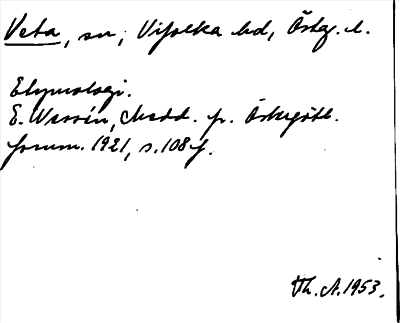 Veta, sn, Vifolka hd, Östg. l.
Etymologi.
E. Wessén, Medd. fr. Östergötl.
fornm. 1921, s. 108 f.
Th. A. 1953.